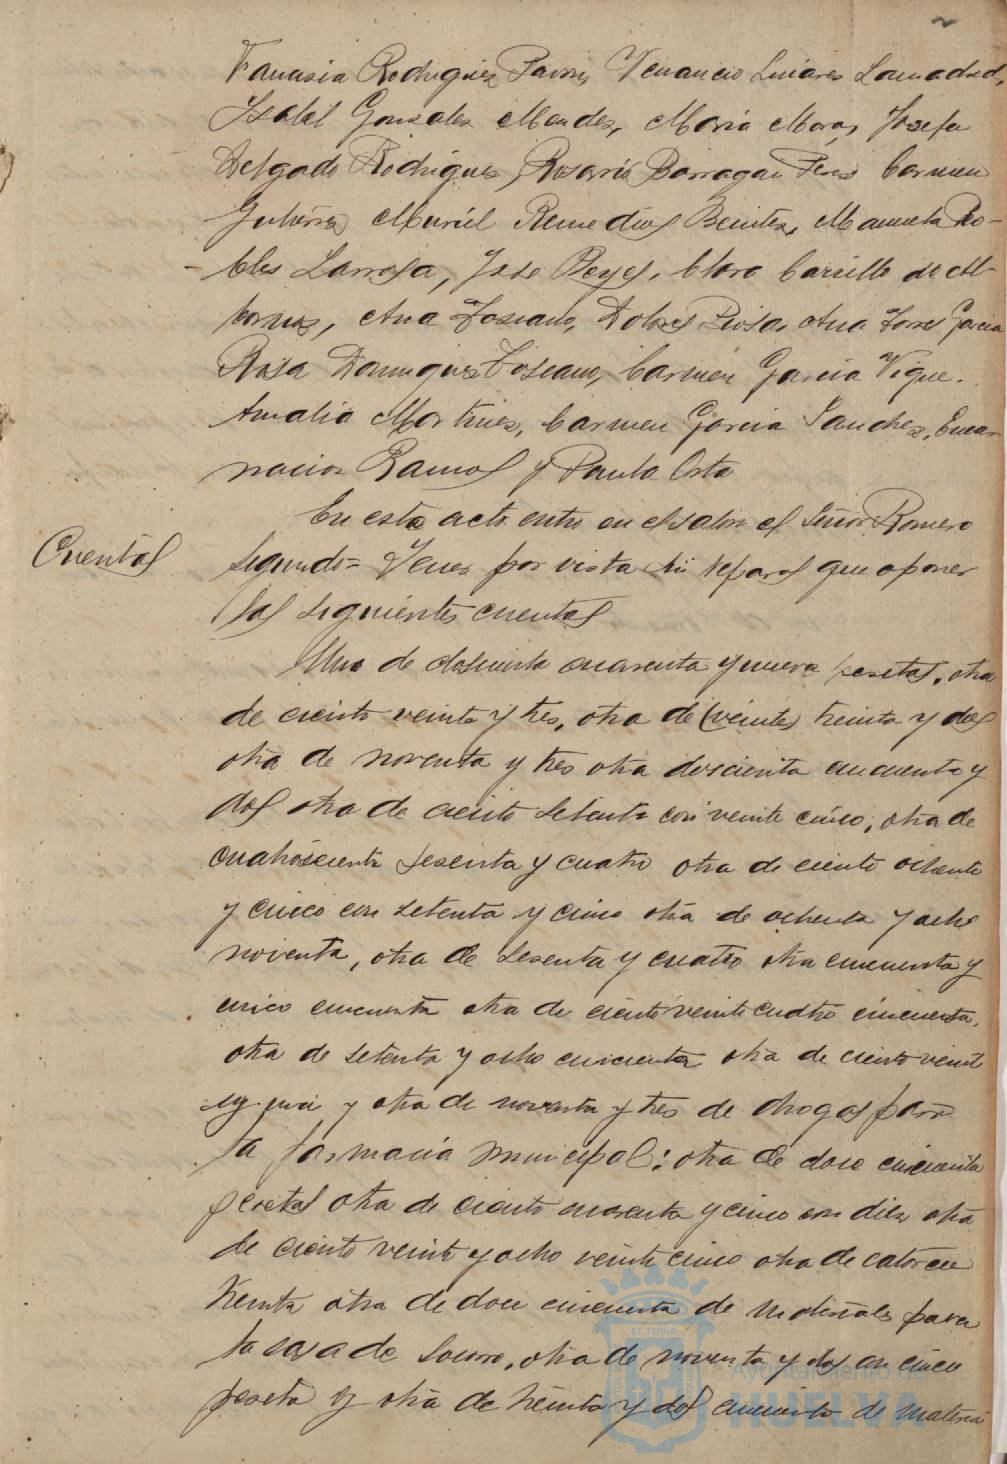 Rodriguez Pavon, Venancio Liñares Lamadrid,
Isabel Gonzales Mendez, Maria Mora, Josefa
Delgado Rodrigues, Rosario Barragan Peres Carmen
Gutierrez Muriel Remedios Benites, Manuela Ro-
bles Larrosa, Jose Reyes, Clara Carrillo de Al-
bornoz, Ana Toscano, Dolores Ana Torres Garcia
Rosa Domingues Toscano, Carmen Garcia Vique.
Amalia Martines, Carmen Garcia Sanches, Encar
nacion Ramos y Paula Orta
En este acto entro en el salon el Señor Romero
Cuentas
Segundo= por vista sin reparos que oponer
las siguientes cuentas
Una de doscienta cuarenta y nueve pesetas, otra
de ciento veinte y tres, otra de (veinte) treinta y dos
otra de noventa y tres otra doscienta cincuenta y
dos otra de ciento setenta con veinte cinco, otra de
cuatroscienta sesenta y cuatro otra de ciento ochenta
y cinco con setenta y cinco otra de ochenta y ocho
noventa, otra de sesenta y cuatro otra cincuenta y
cinco cincuenta otra de ciento veinte cuatro cincuenta,
otra de setenta y ocho cincuenta otra de ciento veint
y otra de noventa y tres de drogas para
la farmacia municipal; otra de doce cincuenta
pesetas otra de ciento cuarenta y cinco con diez otra
de ciento veinte y ocho veinte cinco otra de catorce
treinta otra de doce cincuenta de materiales para
la casa de Socorro, otra de noventa y dos con cinco
peseta y otra de treinta y dos cincuenta de materia
ET TERRA
Ayuntamiento de
HUELVA